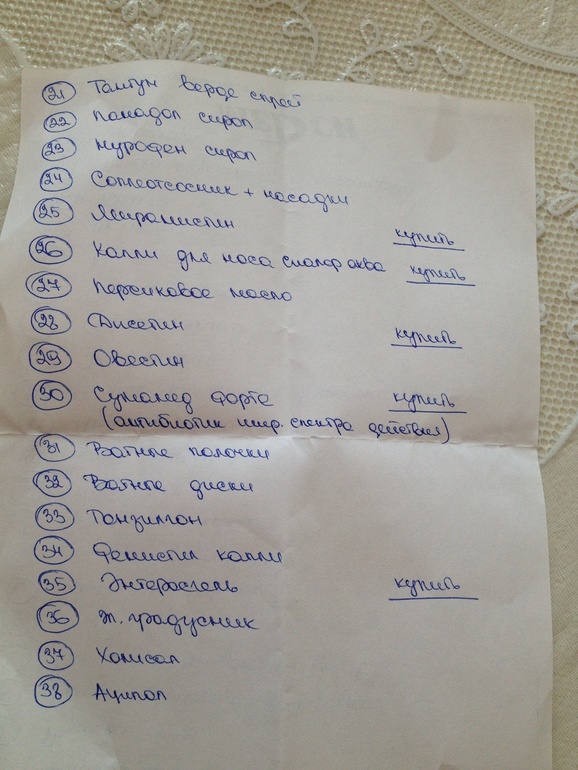 21 Тантум верде спрей
22 Панадол сироп
23 Нурофен сироп
24 Соплеотсосник + насадки
25 Мирамистин купить
26 Капли для носа сиалор аква купить
27 Персиковое масло
28 Дисептин купить
29 Овестин
30 Сумамед форте купить
(антибиотик шир. спектра действия)
31 Ватные палочки
32 Ватные диски
33 Тонзилгон
34 Фенистил капли
35 Энтеросгель купить
36 Эл. градусник
37 Холисал
38 Аципол